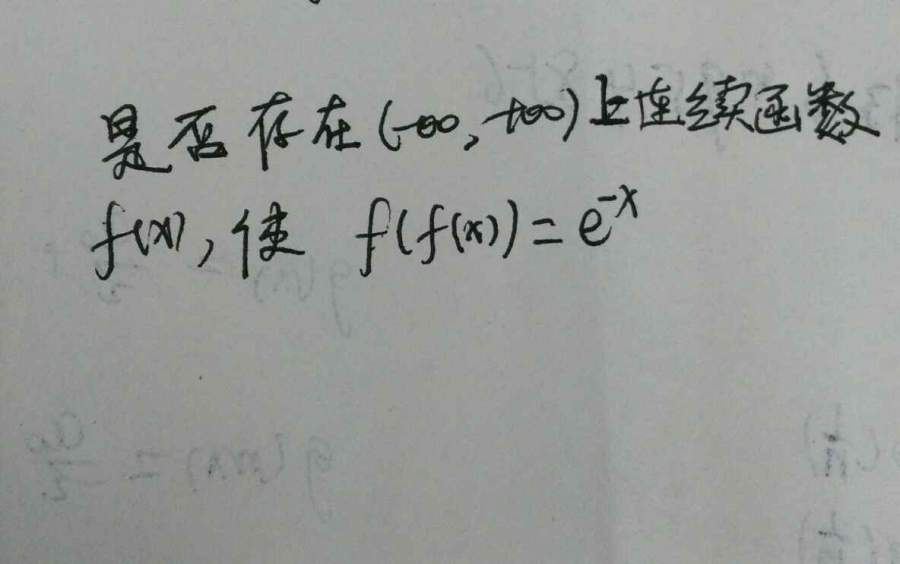 是否存在(-∞,+∞)上连续函数
f(x),使 f(f(x))=e^{-x}